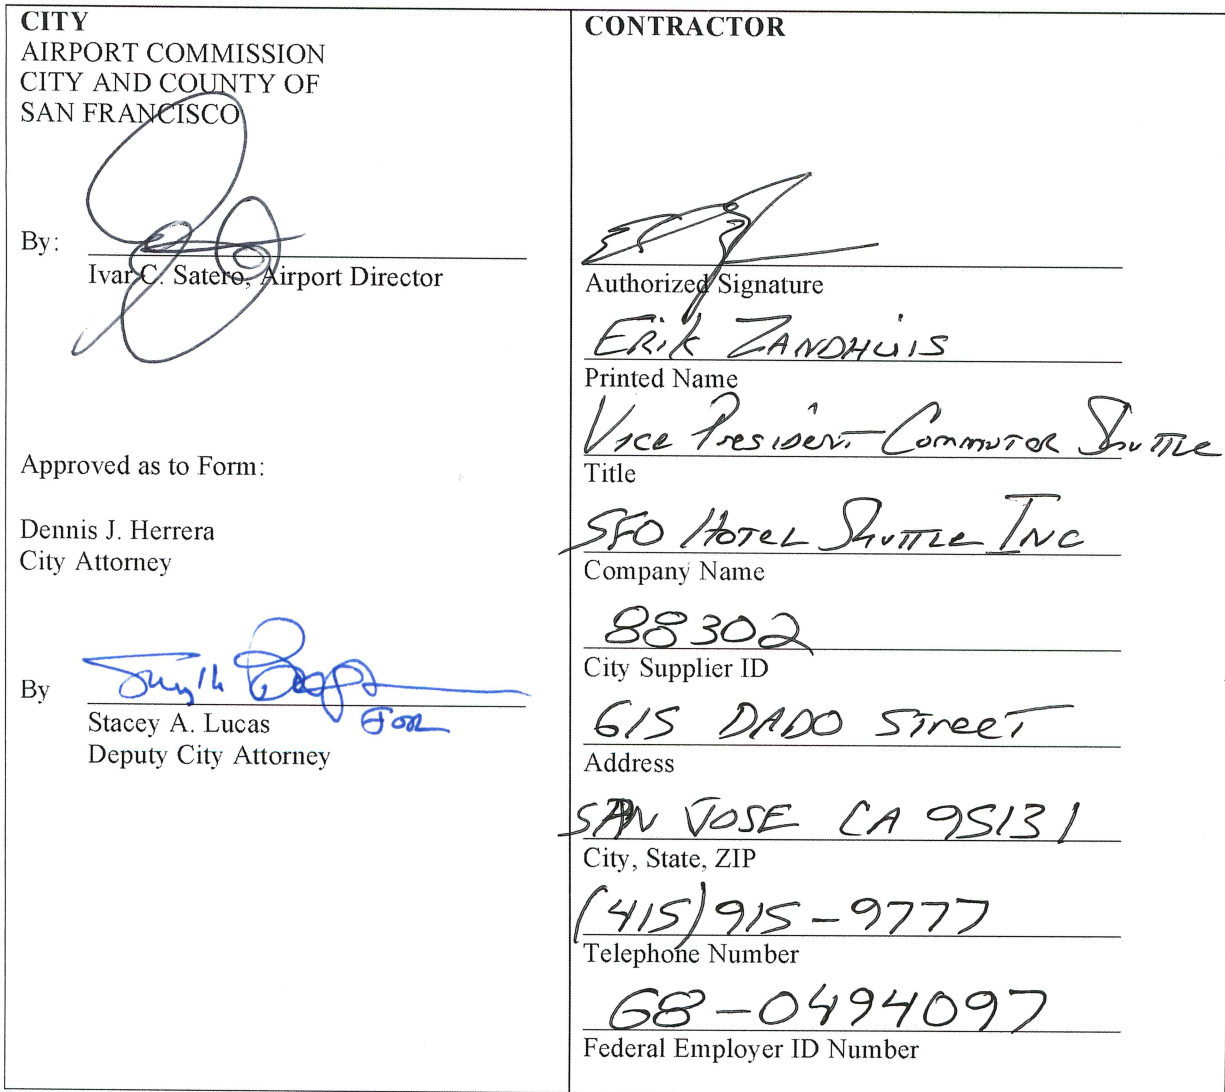 CITY
AIRPORT COMMISSION
CITY AND COUNTY OF
SAN FRANCISCO
By:
Ivar C. Satero, Airport Director
Approved as to Form:
Dennis J. Herrera
City Attorney
By
Stacey A. Lucas FOR
Deputy City Attorney
CONTRACTOR
Authorized Signature
ERIK ZANDHUIS
Printed Name
Vice President - Commuter Shuttle
Title
SFO HOTEL SHUTTLE INC
Company Name
88302
City Supplier ID
615 DADO STreeT
Address
SAN JOSE CA 95131
City, State, ZIP
(415) 915-9777
Telephone Number
68-0494097
Federal Employer ID Number